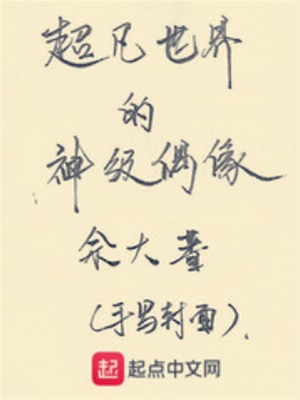 超凡世界
的
神级偶像
佘大著
(手写封面).
起 起点中文网